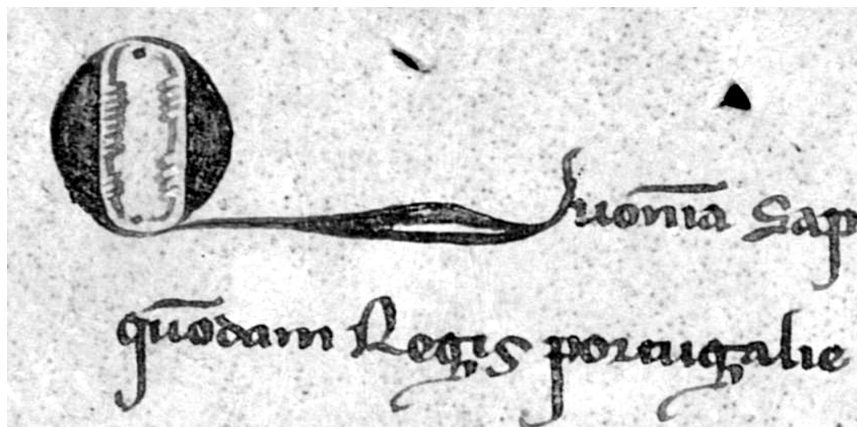 Quonīa Sap
qūodam Regis portugalie